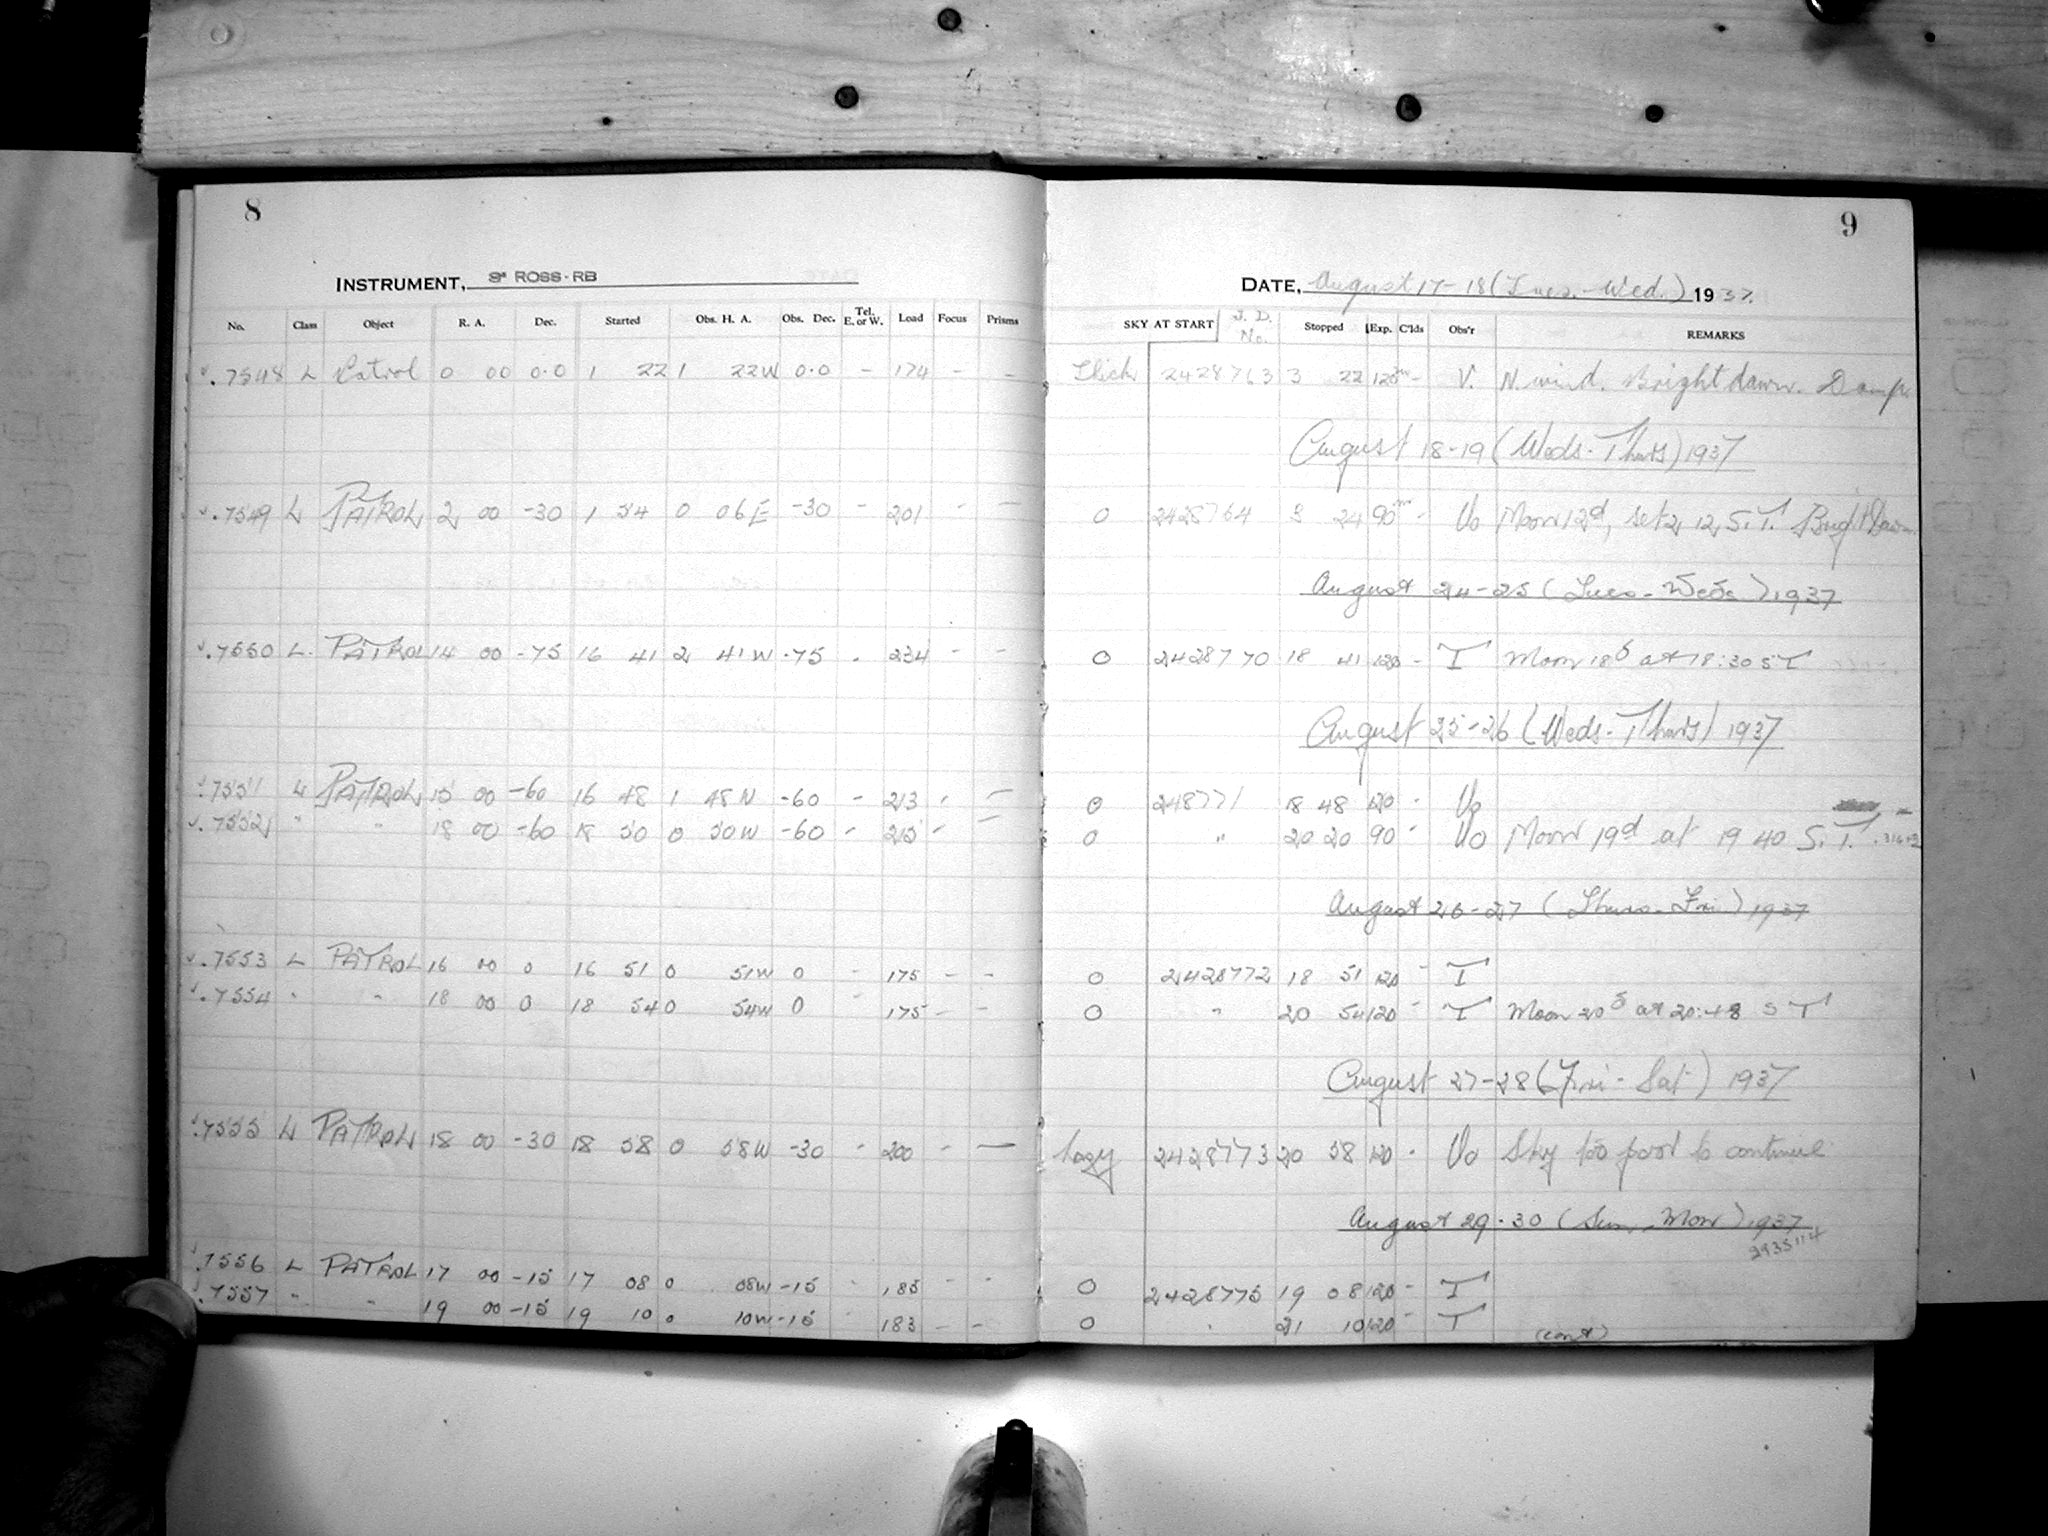 8
INSTRUMENT, 3" ROSS-RB
No. Class Object R. A. Dec. Started Obs. H. A. Obs. Dec. Tel. E. or W. Load Focus Prisms
.7548 L Patrol 0 00 0.0 1 22 1 22W 0.0 - 174 - -
.7549 L PATROL 2 00 -30 1 54 0 06E -30 - 201 - -
.7550 L. PATROL 14 00 -75 16 41 2 41W -75 . 234 - -
.7551 L PATROL 15 00 -60 16 48 1 48W -60 - 213 - -
.7552 " " 18 00 -60 18 50 0 50W -60 - 215 - -
.7553 L PATROL 16 00 0 16 51 0 51W 0 - 175 - -
.7554 " " 18 00 0 18 54 0 54W 0 - 175 - -
.7555 L PATROL 18 00 -30 18 58 0 58W -30 - 200 - -
.7556 L PATROL 17 00 -15 17 08 0 08W -15 - 185 - -
.7557 " " 19 00 -15 19 10 0 10W -15 - 183 - -
9
DATE, August 17-18 (Tues.-Wed.) 1937.
SKY AT START J. D. No. Stopped Exp. C'lds Obs'r REMARKS
Thick 2428763 3 22 120m - V. N. wind. Bright dawn. Damp.
August 18-19 (Weds-Thurs) 1937
0 2428764 3 24 90m - Vo Moon 12d, sets 12 S.T. Bright Dawn
August 24-25 (Tues-Weds) 1937
0 2428770 18 41 120 - T Moon 18d at 18:30 ST
August 25-26 (Weds-Thurs) 1937
0 248771 18 48 120 - Vo
0 " 20 20 90 - Vo Moon 19d at 19 40 S.T.
August 26-27 (Thurs-Fri) 1937
0 2428772 18 51 120 - T
0 " 20 54 120 - T Moon 20d at 20:48 ST
August 27-28 (Fri-Sat) 1937
hazy 2428773 20 58 120 - Vo Sky too poor to continue
August 29-30 (Sun-Mon) 1937
0 2428775 19 08 120 - T
0 " 21 10 120 - T
(cont)